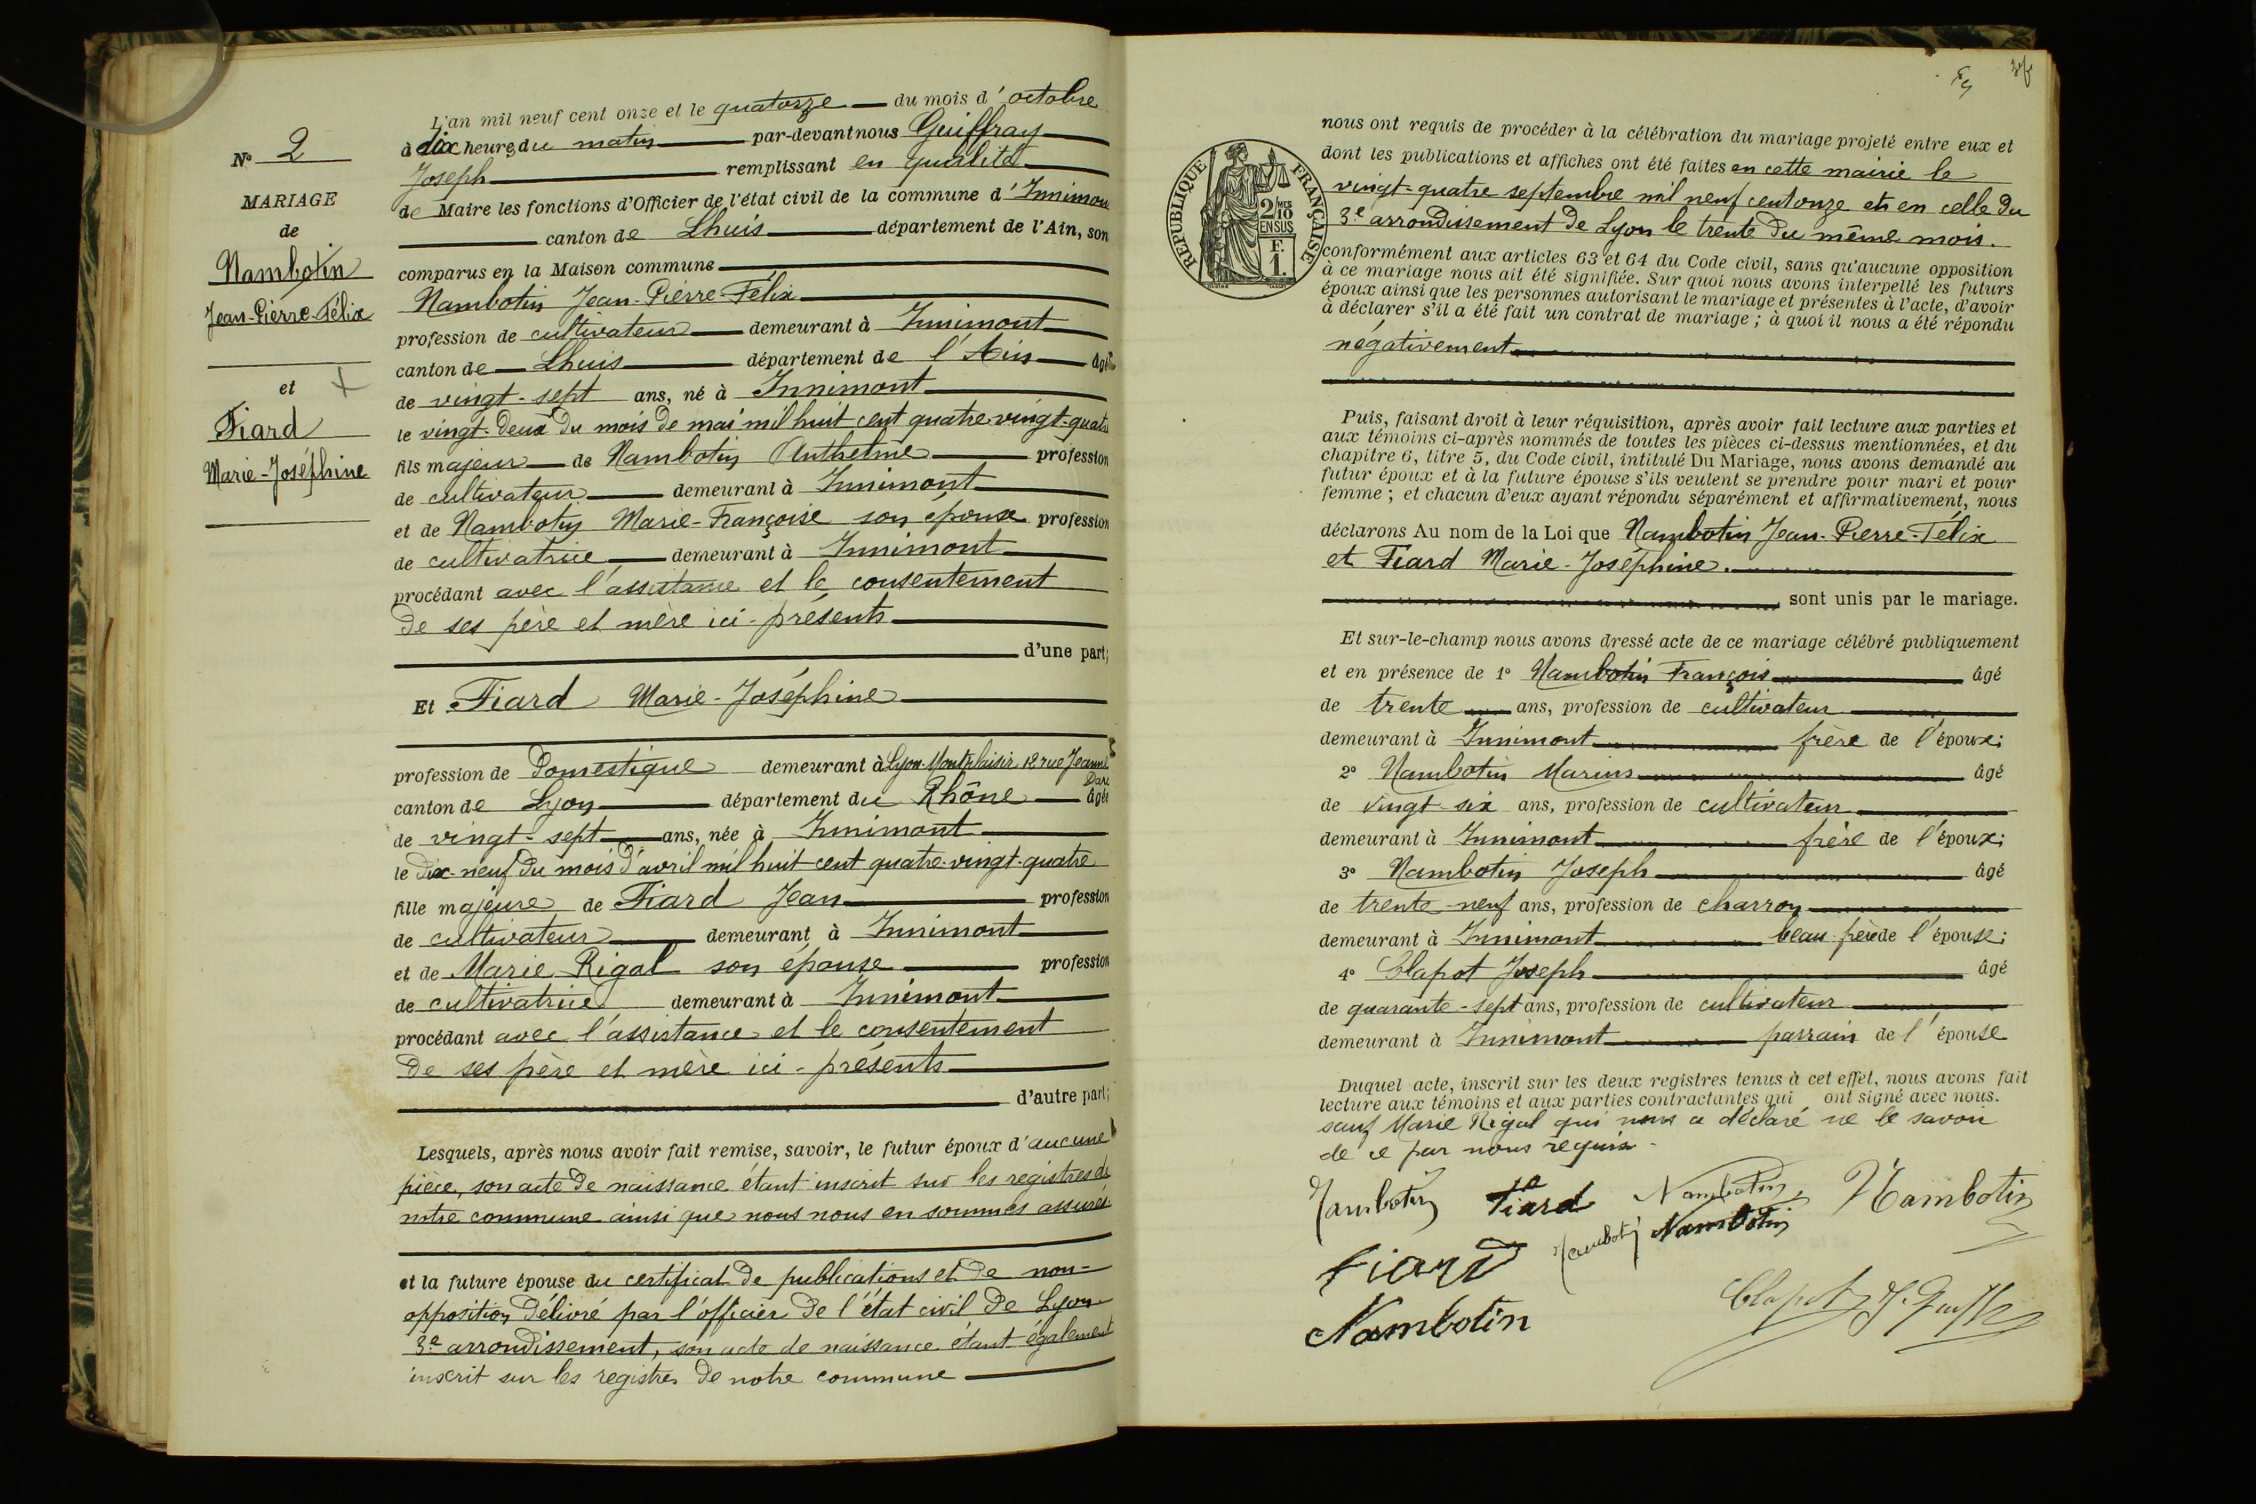 N° 2
MARIAGE
de
Nambotin
Jean-Pierre-Félix
et
Fiard
Marie-Joséphine
L'an mil neuf cent onze et le quatorze du mois d'octobre
à dix heures du matin par-devant nous Guiffray
Joseph remplissant en qualité
de Maire les fonctions d'Officier de l'état civil de la commune d'Innimon
canton de Lhuis département de l'Ain, son
comparus en la Maison commune
Nambotin Jean-Pierre-Félix
profession de cultivateur demeurant à Innimont
canton de Lhuis département de l'Ain âgé
de vingt-sept ans, né à Innimont
le vingt-deux du mois de mai mil huit cent quatre vingt-quatre
fils majeur de Nambotin Anthelme profession
de cultivateur demeurant à Innimont
et de Nambotin Marie-Françoise son épouse profession
de cultivatrice demeurant à Innimont
procédant avec l'assistance et le consentement
de ses père et mère ici-présents
d'une part;
Et Fiard Marie-Joséphine
profession de Domestique demeurant à Lyon-Montplaisir 12 rue Jeanne
Darc
canton de Lyon département du Rhône âgée
de vingt-sept ans, née à Innimont
le dix-neuf du mois d'avril mil huit-cent quatre-vingt-quatre
fille majeure de Fiard Jean profession
de cultivateur demeurant à Innimont
et de Marie Rigal son épouse profession
de cultivatrice demeurant à Innimont
procédant avec l'assistance et le consentement
de ses père et mère ici-présents
d'autre part;
Lesquels, après nous avoir fait remise, savoir, le futur époux d'aucune
pièce, son acte de naissance étant inscrit sur les registres de
notre commune ainsi que nous nous en sommes assurés
et la future épouse du certificat de publications et de non-
opposition délivré par l'officier de l'état civil de Lyon
3e arrondissement, son acte de naissance étant également
inscrit sur les registres de notre commune
RÉPUBLIQUE FRANÇAISE
2/10
EN SUS
F.
1.
nous ont requis de procéder à la célébration du mariage projeté entre eux et
dont les publications et affiches ont été faites en cette mairie le
vingt-quatre septembre mil neuf cent onze et en celle du
3e arrondissement de Lyon le trente du même mois.
conformément aux articles 63 et 64 du Code civil, sans qu'aucune opposition
à ce mariage nous ait été signifiée. Sur quoi nous avons interpellé les futurs
époux ainsi que les personnes autorisant le mariage et présentes à l'acte, d'avoir
à déclarer s'il a été fait un contrat de mariage; à quoi il nous a été répondu
négativement
Puis, faisant droit à leur réquisition, après avoir fait lecture aux parties et
aux témoins ci-après nommés de toutes les pièces ci-dessus mentionnées, et du
chapitre 6, titre 5, du Code civil, intitulé Du Mariage, nous avons demandé au
futur époux et à la future épouse s'ils veulent se prendre pour mari et pour
femme; et chacun d'eux ayant répondu séparément et affirmativement, nous
déclarons Au nom de la Loi que Nambotin Jean-Pierre-Félix
et Fiard Marie-Joséphine.
sont unis par le mariage.
Et sur-le-champ nous avons dressé acte de ce mariage célébré publiquement
et en présence de 1° Nambotin François âgé
de trente ans, profession de cultivateur
demeurant à Innimont frère de l'époux;
2° Nambotin Marius âgé
de vingt-six ans, profession de cultivateur
demeurant à Innimont frère de l'époux;
3° Nambotin Joseph âgé
de trente-neuf ans, profession de charron
demeurant à Innimont beau-père de l'épouse;
4° Clapot Joseph âgé
de quarante-sept ans, profession de cultivateur
demeurant à Innimont parrain de l'épouse
Duquel acte, inscrit sur les deux registres tenus à cet effet, nous avons fait
lecture aux témoins et aux parties contractantes qui ont signé avec nous.
sauf Marie Rigal qui nous a déclaré ne le savoir
de ce par nous requise.
Nambotin Fiard Nambotin Nambotin
Nambotin Nambotin
Fiard
Clapot
Nambotin